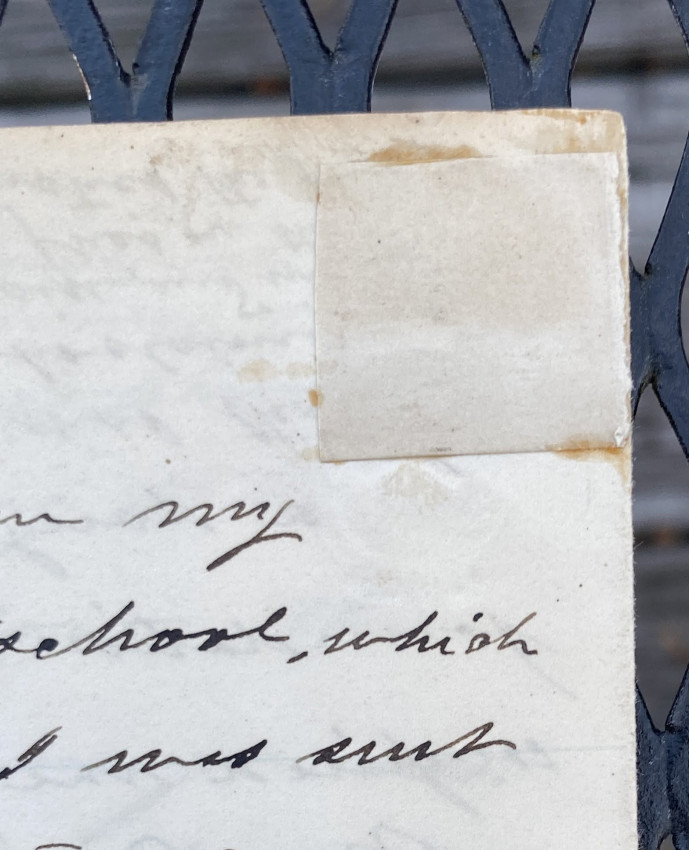 my
school, which
I was sent